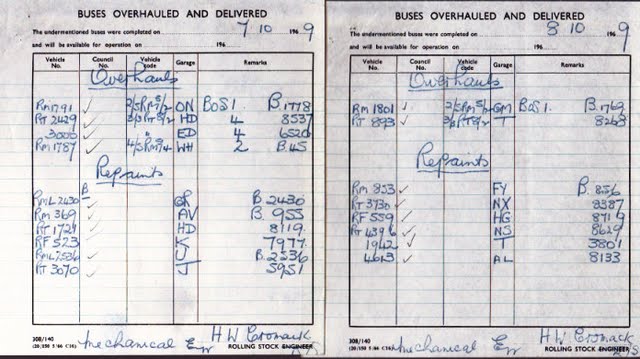 BUSES OVERHAULED AND DELIVERED
The undermentioned buses were completed on 7 10 1969
and will be available for operation on 196
Vehicle No. Council No. Vehicle code Garage Remarks
Overhauls
RM1791 ✓ 2/5RM5/2 ON BOS 1. B.1778
RT 2429 ✓ 3/3RT8/2 HD 4 8537
3000 ✓ " ED 4 6520
RM 1787 ✓ 4/5RM7/4 WH 2 B45
Repaints
RML 2430 B GR B. 2430
RM 369 ✓ AV B. 955
RT 1721 ✓ HD 8119
RF 523 ✓ K 7977
RML 2536 ✓ U B.2536
RT 3070 ✓ J 5951
308/140
(20/250 5/66 C16) Mechanical Er H W Cromack
ROLLING STOCK ENGINEER
BUSES OVERHAULED AND DELIVERED
The undermentioned buses were completed on 8 10 1969
and will be available for operation on 196
Vehicle No. Council No. Vehicle code Garage Remarks
Overhauls
RM 1801 ✓ 2/5RM5/2 GM BOS 1. B.1769
RT 893 ✓ 3/3RT8/2 T 8263
Repaints
RM 853 ✓ FY B. 856
RT 3730 ✓ NX 8387
RF 559 ✓ HG 8719
RT 4396 ✓ NS 8629
1942 ✓ T 3801
4613 ✓ AL 8133
308/140
(20/250 5/66 C16) Mechanical Er H W Cromack
ROLLING STOCK ENGINEER